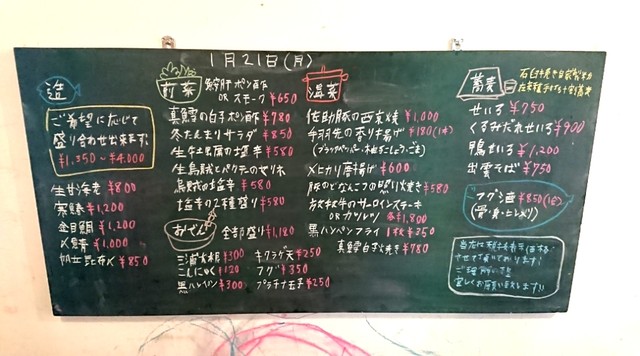 1月21日(月)
造
ご希望に応じて
盛り合わせ出来ます
¥1,350〜¥4,000
¥800
寒鰤 ¥1,200
金目鯛 ¥1,200
〆鯖 ¥1,000
帆立 昆布〆 ¥850
前菜
鮟肝ポン酢
OR スモーク ¥650
真鱈の白子ポン酢 ¥780
冬たまりサラダ ¥850
生牛豆腐の塩辛 ¥580
¥580
烏賊の塩辛 ¥580
塩辛の2種盛り ¥580
おでん
全部盛り ¥1,180
三浦大根 ¥300
こんにゃく ¥120
黒ハンペン ¥300
キクラゲ天 ¥250
フグ ¥350
プラチナ玉子 ¥250
温菜
佐助豚の西京焼 ¥1,000
手羽先の香り揚げ ¥180(1本)
(ブラックペッパー・柚子こしょう・ごま)
メヒカリ唐揚げ ¥600
豚のどなんこつの照り焼き ¥580
放牧牛のサーロインステーキ
OR カツレツ 各¥1,800
黒ハンペンフライ 1枚¥350
真鱈白子焼き ¥780
蕎麦
せいろ ¥750
くるみだれせいろ ¥900
鴨せいろ ¥1,200
出雲そば ¥750
フグ酒 ¥850(1合)
(骨・身・ヒレ入り)
当店は税抜き表示価格
させて頂いております!
ご理解の程
宜しくお願い致します!!